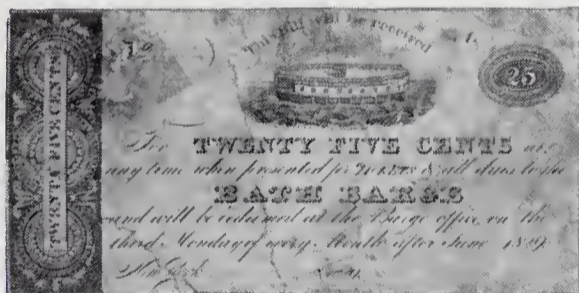 TWENTY FIVE CENTS
This note will be received
25
For TWENTY FIVE CENTS
any time when presented for & all dues to the
BATH
and will be redeemed at the Barge office on the
third Monday of every Month after June
New York